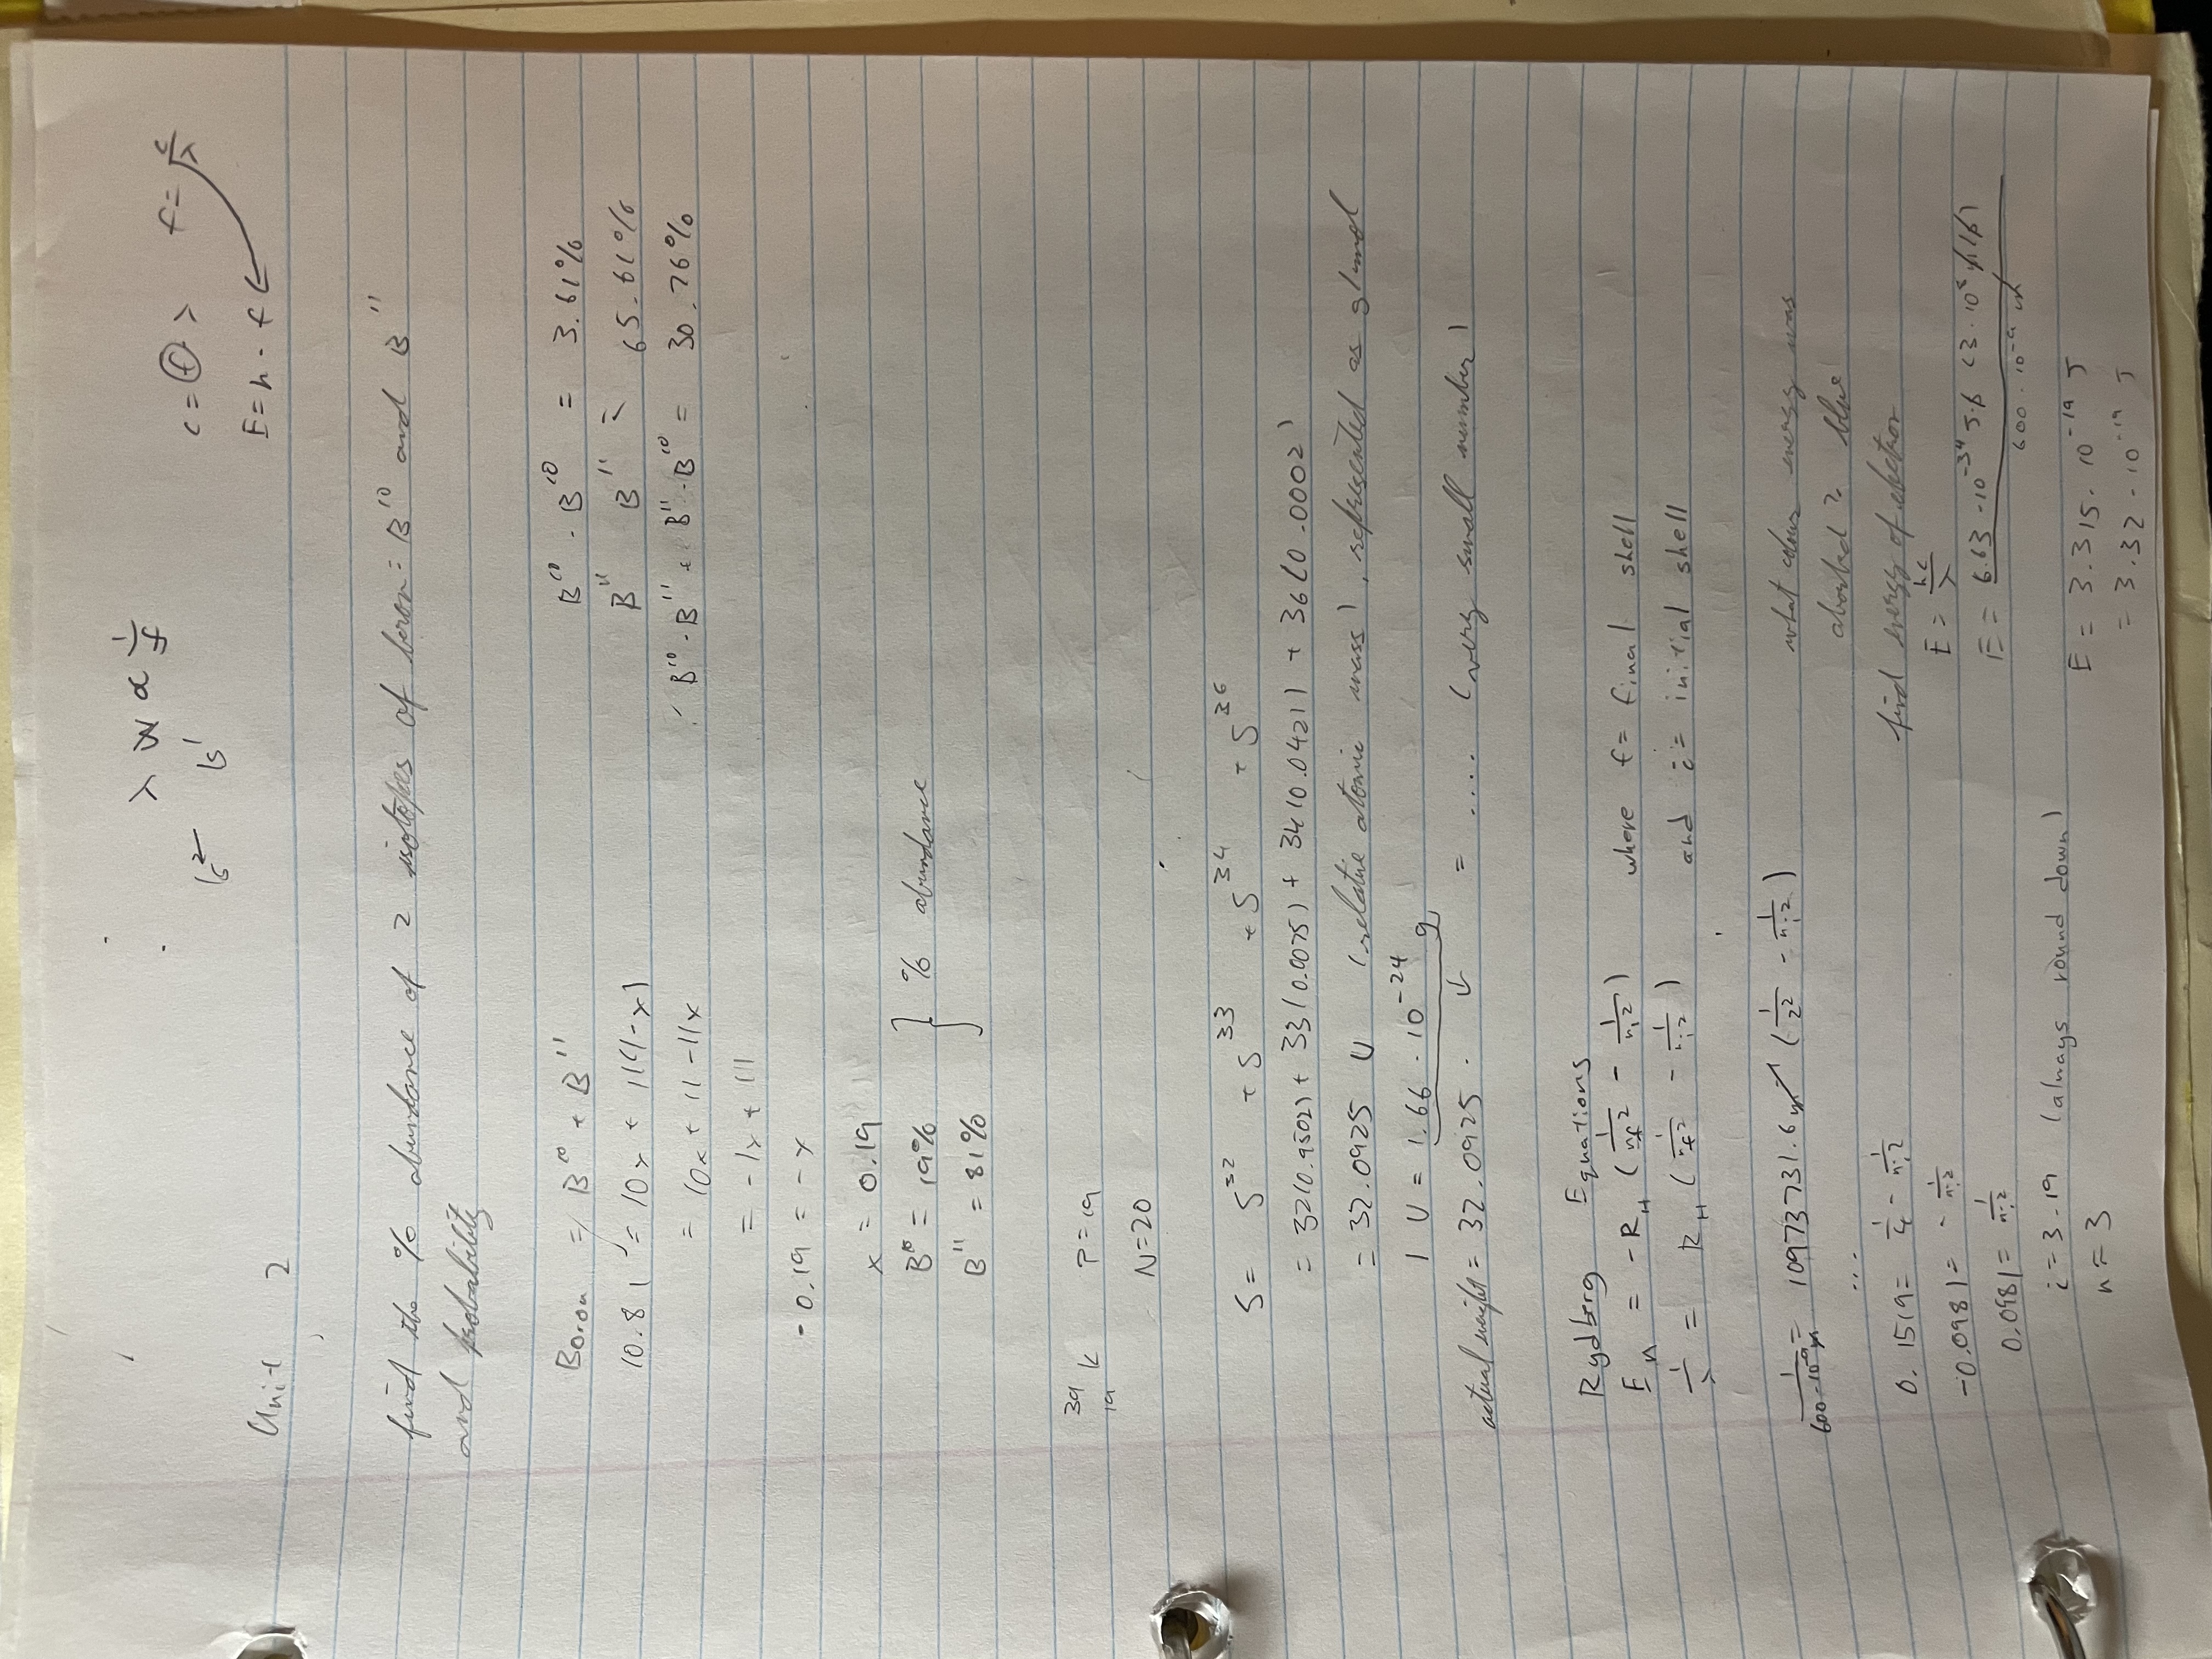 λ w ∝ 1/f
c = f λ f = c/λ
1s² 1s¹
E = h · f
Unit 2
find the % abundance of 2 isotopes of boron: B¹⁰ and B¹¹
and probability
Boron = B¹⁰ + B¹¹
10.81 = 10x + 11(1-x)
= 10x + 11 - 11x
= -1x + 11
-0.19 = -x
x = 0.19
B¹⁰ = 19%
B¹¹ = 81%
} % abundance
B¹⁰ · B¹⁰ = 3.61%
B¹¹ B¹¹ = 65.61%
B¹⁰ · B¹¹ + B¹¹ · B¹⁰ = 30.76%
³⁹₁₉K P = 19
N = 20
S = S³² + S³³ + S³⁴ + S³⁶
= 32(0.9502) + 33(0.0075) + 34(0.0421) + 36(0.0002)
= 32.0925 U (relative atomic mass), represented as g/mol
1 U = 1.66 · 10⁻²⁴ g
actual weight = 32.0925 · ↓ = .... (very small number)
Rydberg Equations
Eₙ = -R_H (1/n_f² - 1/n_i²) where f = final shell
1/λ = R_H (1/n_f² - 1/n_i²) and i = initial shell
1/(600·10⁻⁹m) = 10973731.6 m⁻¹ (1/2² - 1/n_i²)
...
0.1519 = 1/4 - 1/n_i²
-0.0981 = - 1/n_i²
0.0981 = 1/n_i²
i = 3.19 (always round down)
n = 3
what colour energy was
aborbed? blue
find energy of electron
E = hc/λ
E = 6.63 · 10⁻³⁴ J·s (3 · 10⁸ m/s) / 600 · 10⁻⁹ m
E = 3.315 · 10⁻¹⁹ J
= 3.32 · 10⁻¹⁹ J